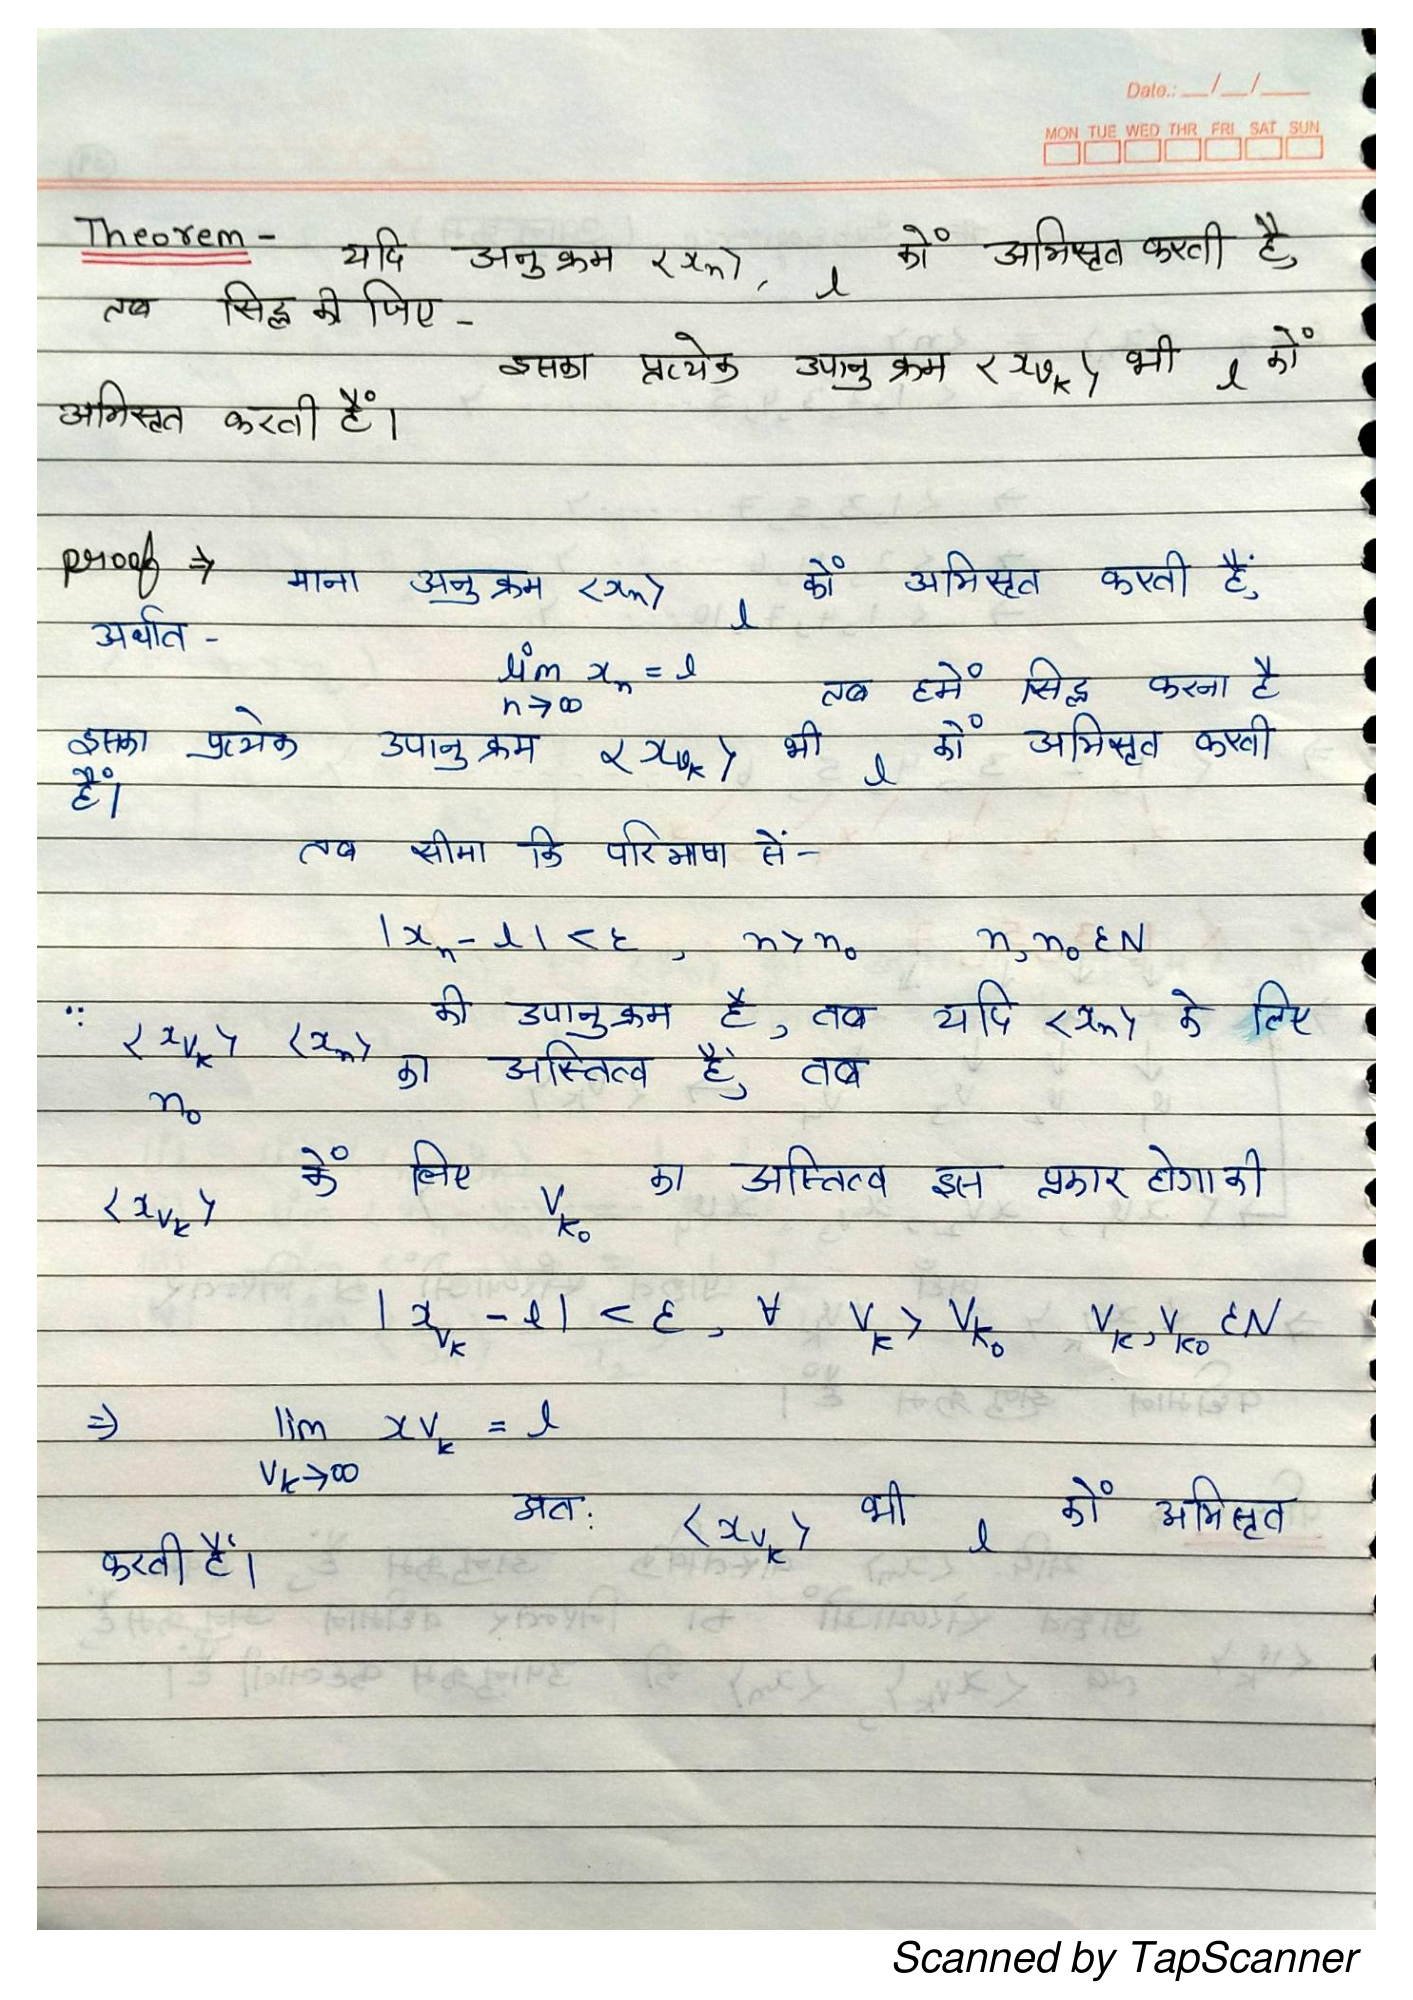 Date.: __/__/__
MON TUE WED THR FRI SAT SUN
Theorem - यदि अनुक्रम <xₙ>, l कों अभिसृत करती है,
तब सिद्ध कीजिए -
इसका प्रत्येक उपानुक्रम <x_{v_k}> भी l कों
अभिसृत करती हैं।
Proof ⇒ माना अनुक्रम <xₙ> l कों अभिसृत करती हैं,
अर्थात -
lim xₙ = l तब हमें सिद्ध करना है
n→∞
इसका प्रत्येक उपानुक्रम <x_{v_k}> भी l कों अभिसृत करती
हैं।
तब सीमा कि परिभाषा सें -
|xₙ - l| < ε, n > n₀ n, n₀ ε N
∵ <x_{v_k}> <xₙ> की उपानुक्रम है, तब यदि <xₙ> के लिए
n₀ का अस्तित्व हैं, तब
<x_{v_k}> कें लिए v_{k₀} का अस्तित्व इस प्रकार होगा की
|x_{v_k} - l| < ε, ∀ v_k > v_{k₀} v_k, v_{k₀} ε N
⇒ lim x_{v_k} = l
v_k→∞
अत: <x_{v_k}> भी l कों अभिसृत
करती हैं।
Scanned by TapScanner